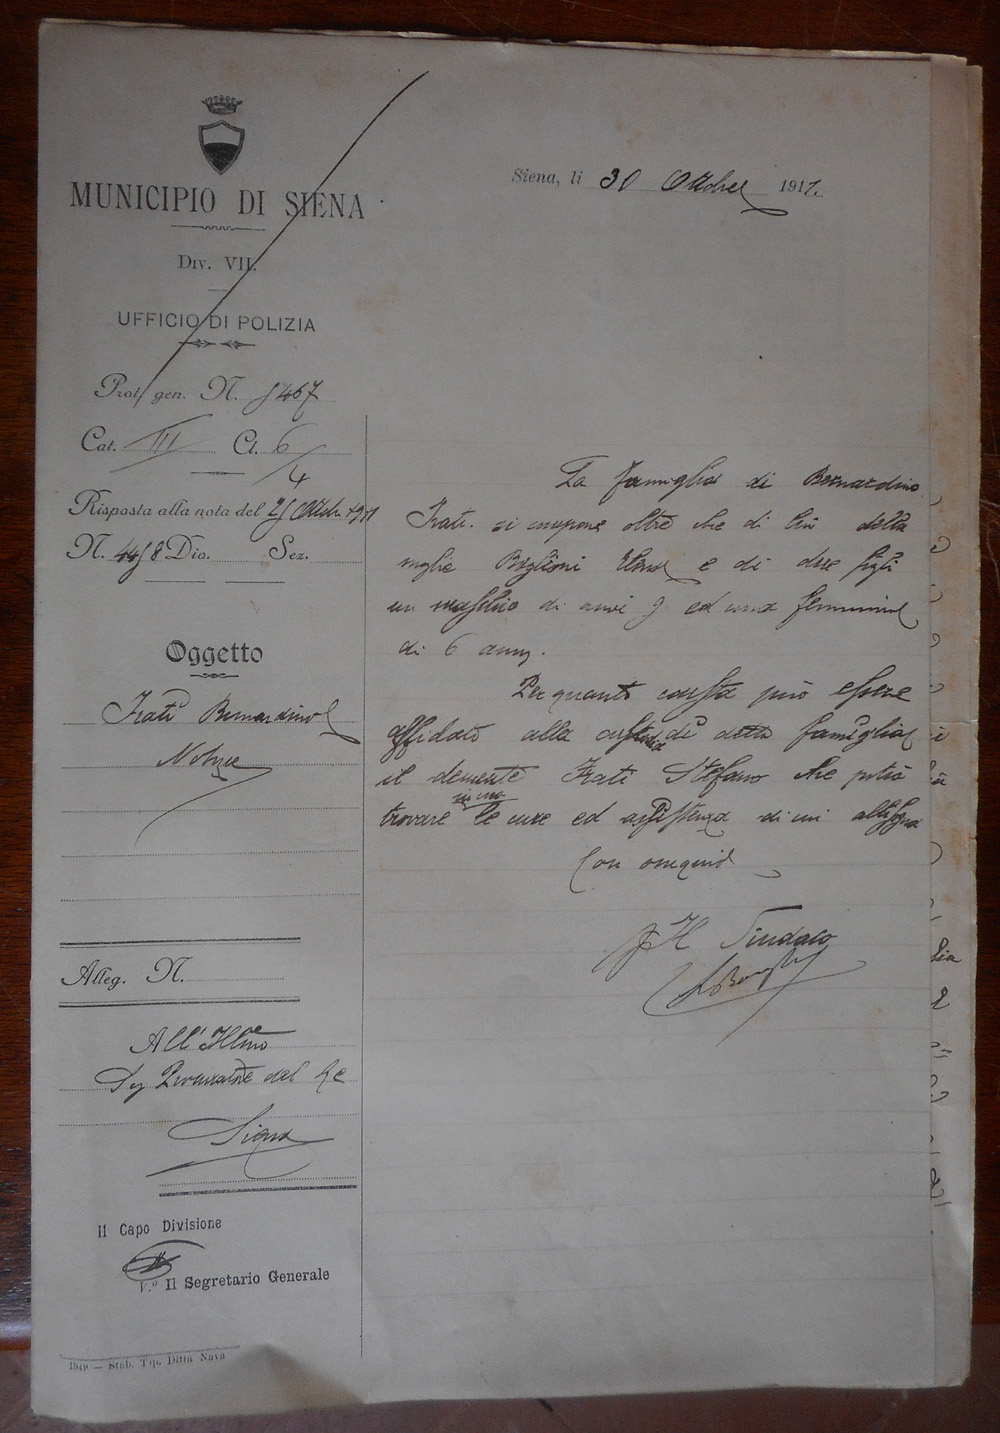 MUNICIPIO DI SIENA
Div. VII.
UFFICIO DI POLIZIA
Siena, li 30 Ottobre 1911.
Prot. gen. N. 5467
Cat. III Cl. 6/4
Risposta alla nota del 25 Ottobre 1911
N. 4458 Div. Sez.
Oggetto
Frati Bernardino
Notizie
Alleg. N.
All' Illmo
Sig Procuratore del Re
Siena
Il Capo Divisione
V.º Il Segretario Generale
1910 — Stab. Tip. Ditta Nava
La famiglia di Bernardino
Frati si compone oltre che di lui della
moglie e di due figli
un maschio di anni 9 ed una femmina
di 6 anni.
Per quanto consta può essere
affidato alla custodia di detta famiglia
il demente Frati Stefano che potrà
trovare in essa le cure ed assistenza di cui abbisogna
Con ossequio
Il Sindaco